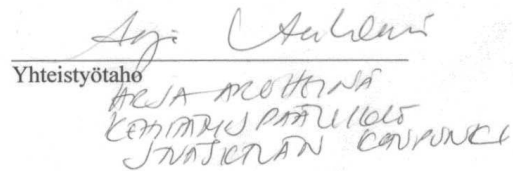 Yhteistyötaho
ARJA AROHEINÄ
KEHITTÄMISPÄÄLLIKKÖ
JYVÄSKYLÄN KAUPUNKI